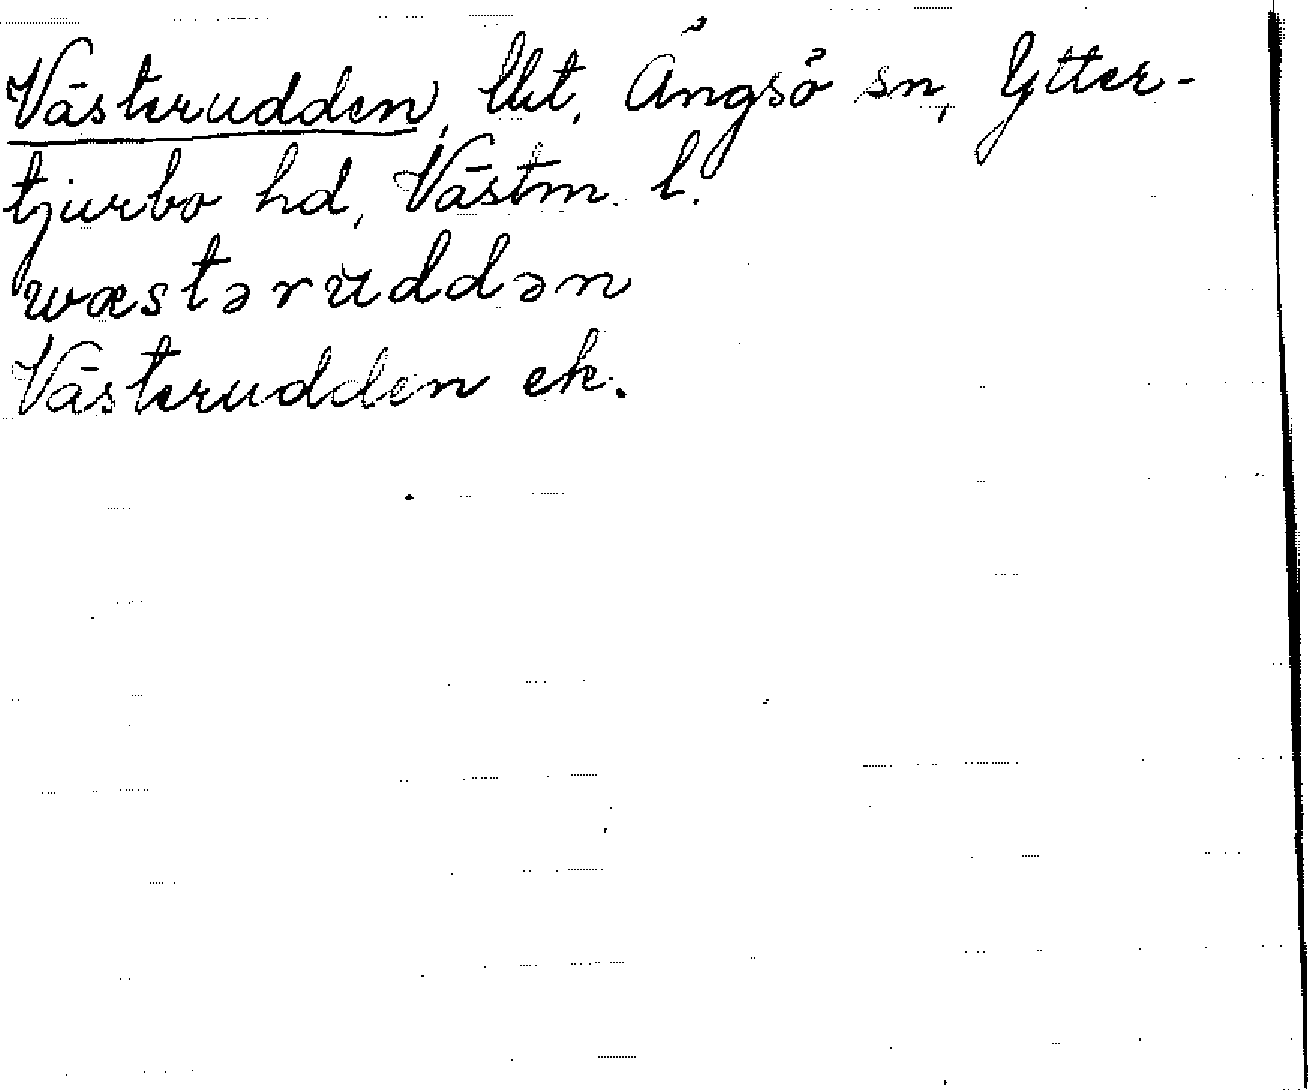 Västerudden, lht, Ängsö sn, Ytter-
tjurbo hd, Västm. l.
wæstəruddən
Västerudden ek.